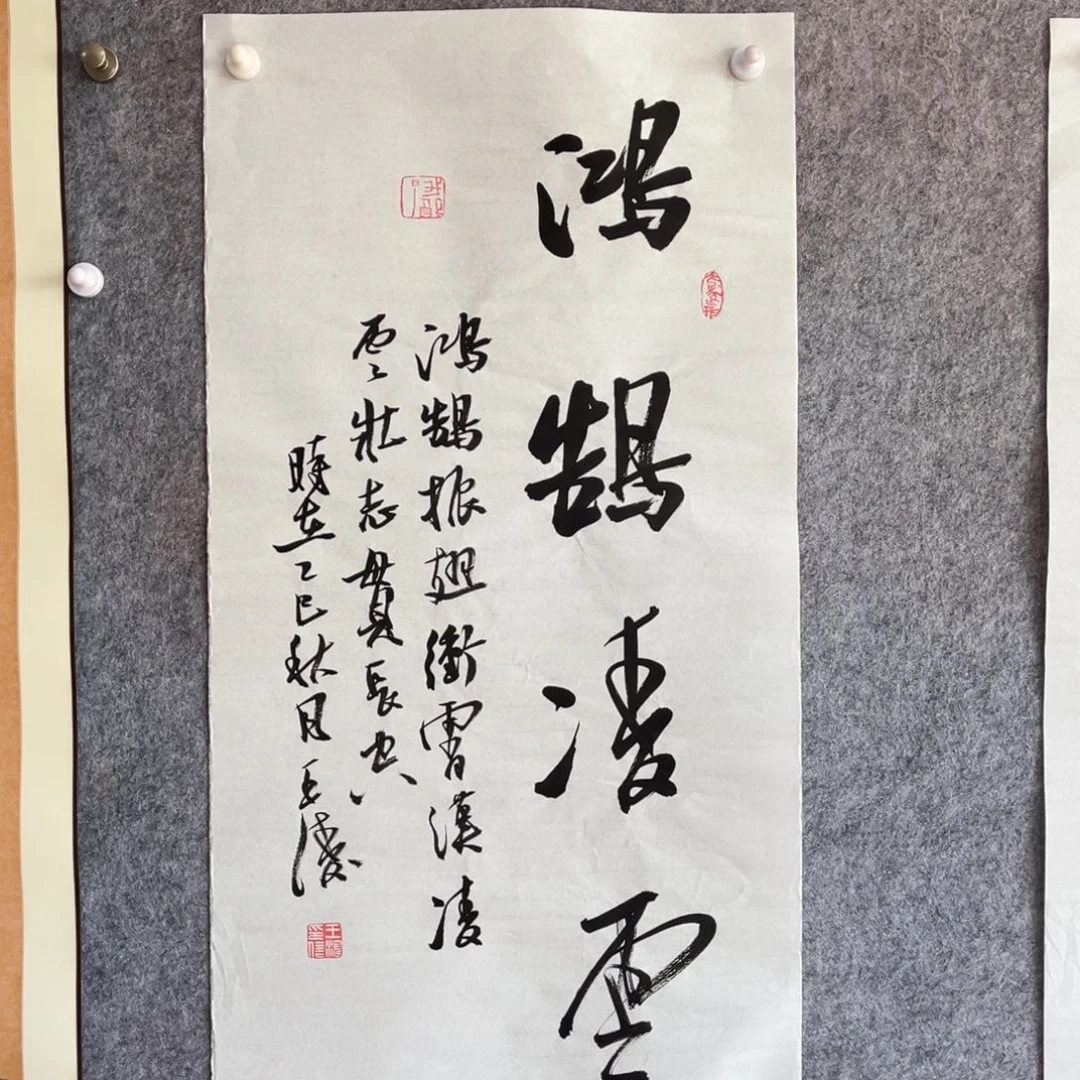 鴻鵠凌雲
鴻鵠振翅衝霄漢凌
雲壯志貫長空
時在乙巳秋月王凌